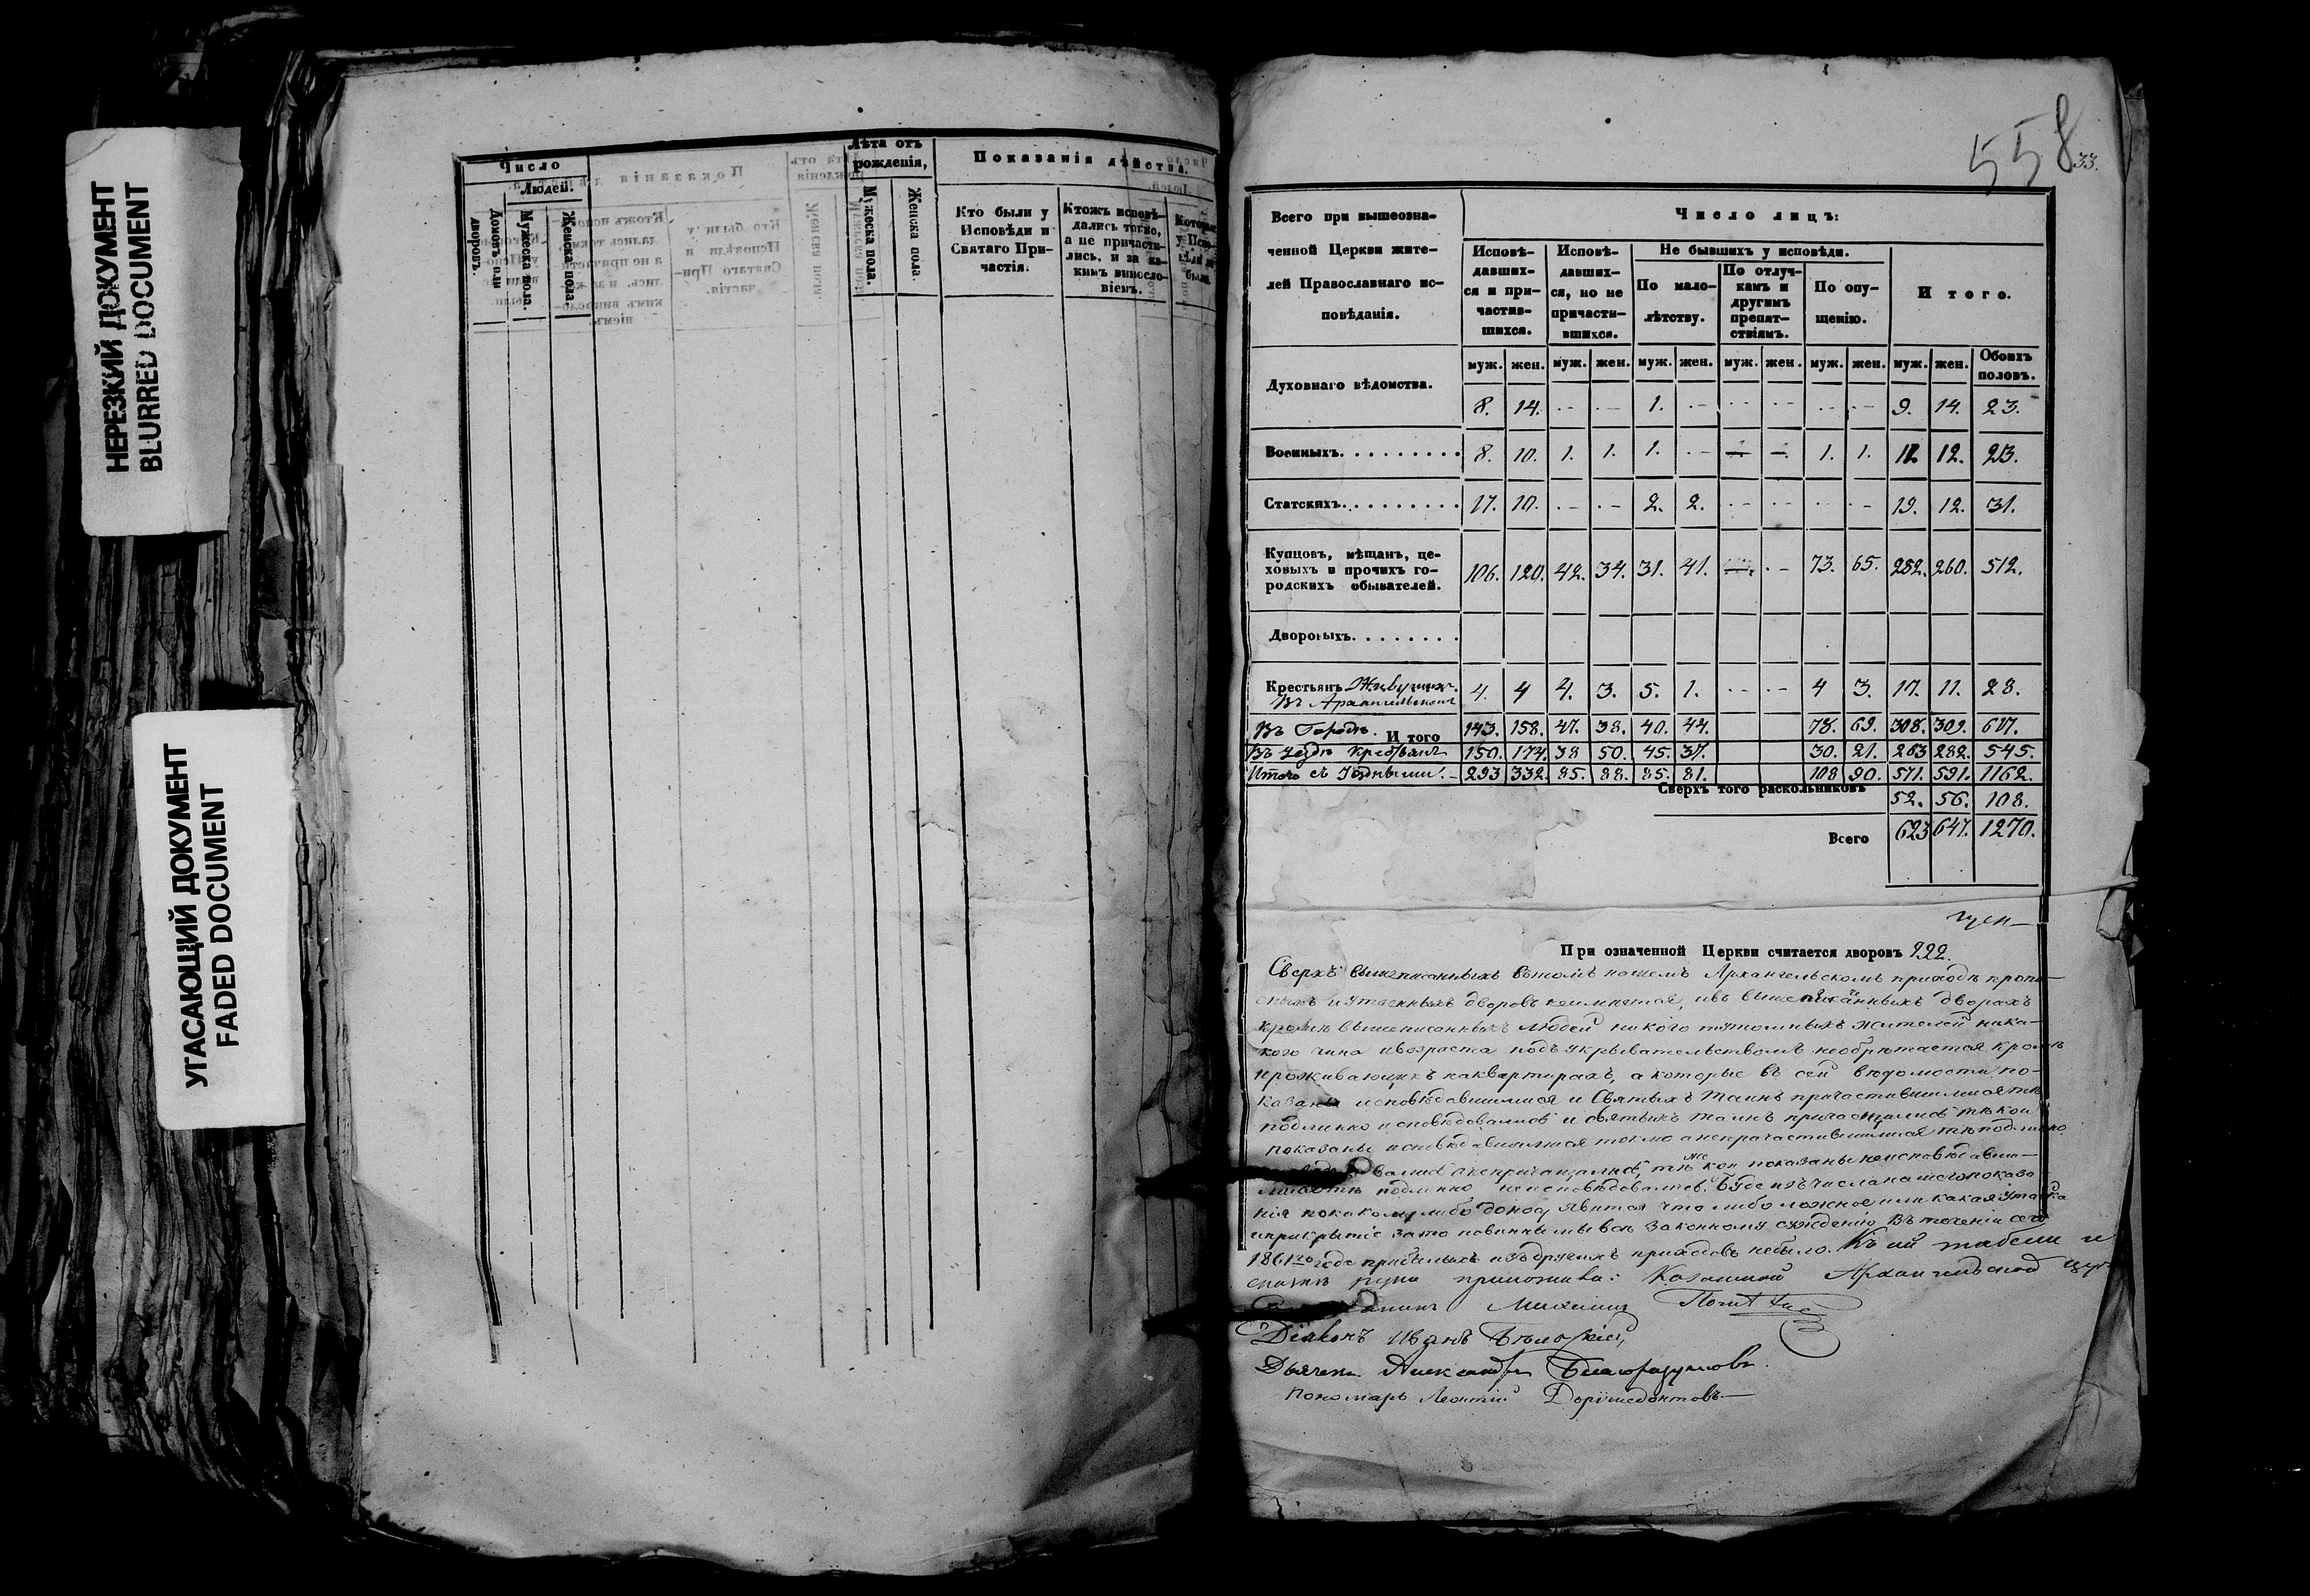 НЕРЕЗКИЙ ДОКУМЕНТ
BLURRED DOCUMENT
УГАСАЮЩИЙ ДОКУМЕНТ
FADED DOCUMENT
Число
Людей.
Домовъ или дворовъ.
Мужеска пола.
Женска пола.
Лѣта отъ рожденія,
Мужеска пола.
Женска пола.
Показанія дѣйства.
Кто были у Исповѣди и Святаго Причастія.
Ктожъ исповѣдались токмо, а не причастились, и за какимъ винословіемъ.
558
33.
Всего при вышеозначенной Церкви жителей Православнаго исповѣданія.
Число лицъ:
Исповѣдавшихся и причастившихся.
Исповѣдавшихся, но не причастившихся.
Не бывшихъ у исповѣди.
По малолѣтству.
По отлучкамъ и другимъ препятствіямъ.
По опущенію.
Итого.
муж. жен. муж. жен. муж. жен. муж. жен. муж. жен. муж. жен. Обоихъ половъ.
Духовнаго вѣдомства. 8. 14. 1. 9. 14. 23.
Военныхъ. 8. 10. 1. 1. 1. 1. 1. 11. 12. 23.
Статскихъ. 17. 10. 2. 2. 19. 12. 31.
Купцовъ, мѣщанъ, цеховыхъ и прочихъ городскихъ обывателей. 106. 120. 42. 34. 31. 41. 73. 65. 252. 260. 512.
Дворовыхъ.
Крестьянъ 4. 4 4. 3. 5. 1. 4 3. 17. 11. 28.
Въ Архангельскомъ
Въ Городѣ. Итого 143. 158. 47. 38. 40. 44. 78. 69. 308. 309. 617.
Въ Уездѣ крестьянъ 150. 174. 38 50. 45. 37. 30. 21. 263 282. 545.
Итого съ Уездными. 293 332. 85. 88. 85. 81. 108 90. 571. 591. 1162.
Сверхъ того раскольниковъ 52. 56. 108.
Всего 623 647. 1270.
При означенной Церкви считается дворовъ 122.
Сверхъ вышеписанныхъ въ томъ нашемъ Архангельскомъ приходѣ
и утаенныхъ дворовъ неимѣется, ивъ вышеписанныхъ дворахъ
кромѣ вышеписанныхъ людей никого тутошныхъ жителей ника-
кого чина ивозраста подъ укрывательствомъ необрѣтается кромѣ
проживающихъ наквартирахъ, а которые въ сей вѣдомости по-
казаны исповѣдавшимися и Святыхъ Таинъ причастившимися тѣ
подлинно исповѣдовались и святыхъ таинъ причащались тѣ кои
показаны исповѣдавшимися токмо анепричастившимися тѣ подлинно
анепричащались, тѣ же кои показаны неисповѣдавши-
мися тѣ подлинно неисповѣдовались. Буде изъ числа нашего показа
нія покакому либо доносу явится что либо ложное или какая утайка
иприкрытіе зато повинны мы всѣ законному сужденію. Въ теченіи сего
1861го года прибылыхъ изъ другихъ приходовъ небыло. Къ сей табели и
руки приложили: Казанской Архангельской цер.
Михаилъ
Діаконъ Иванъ
Дьячекъ Александръ Благоразумовъ.
Пономарь Леонтій Доримедонтовъ